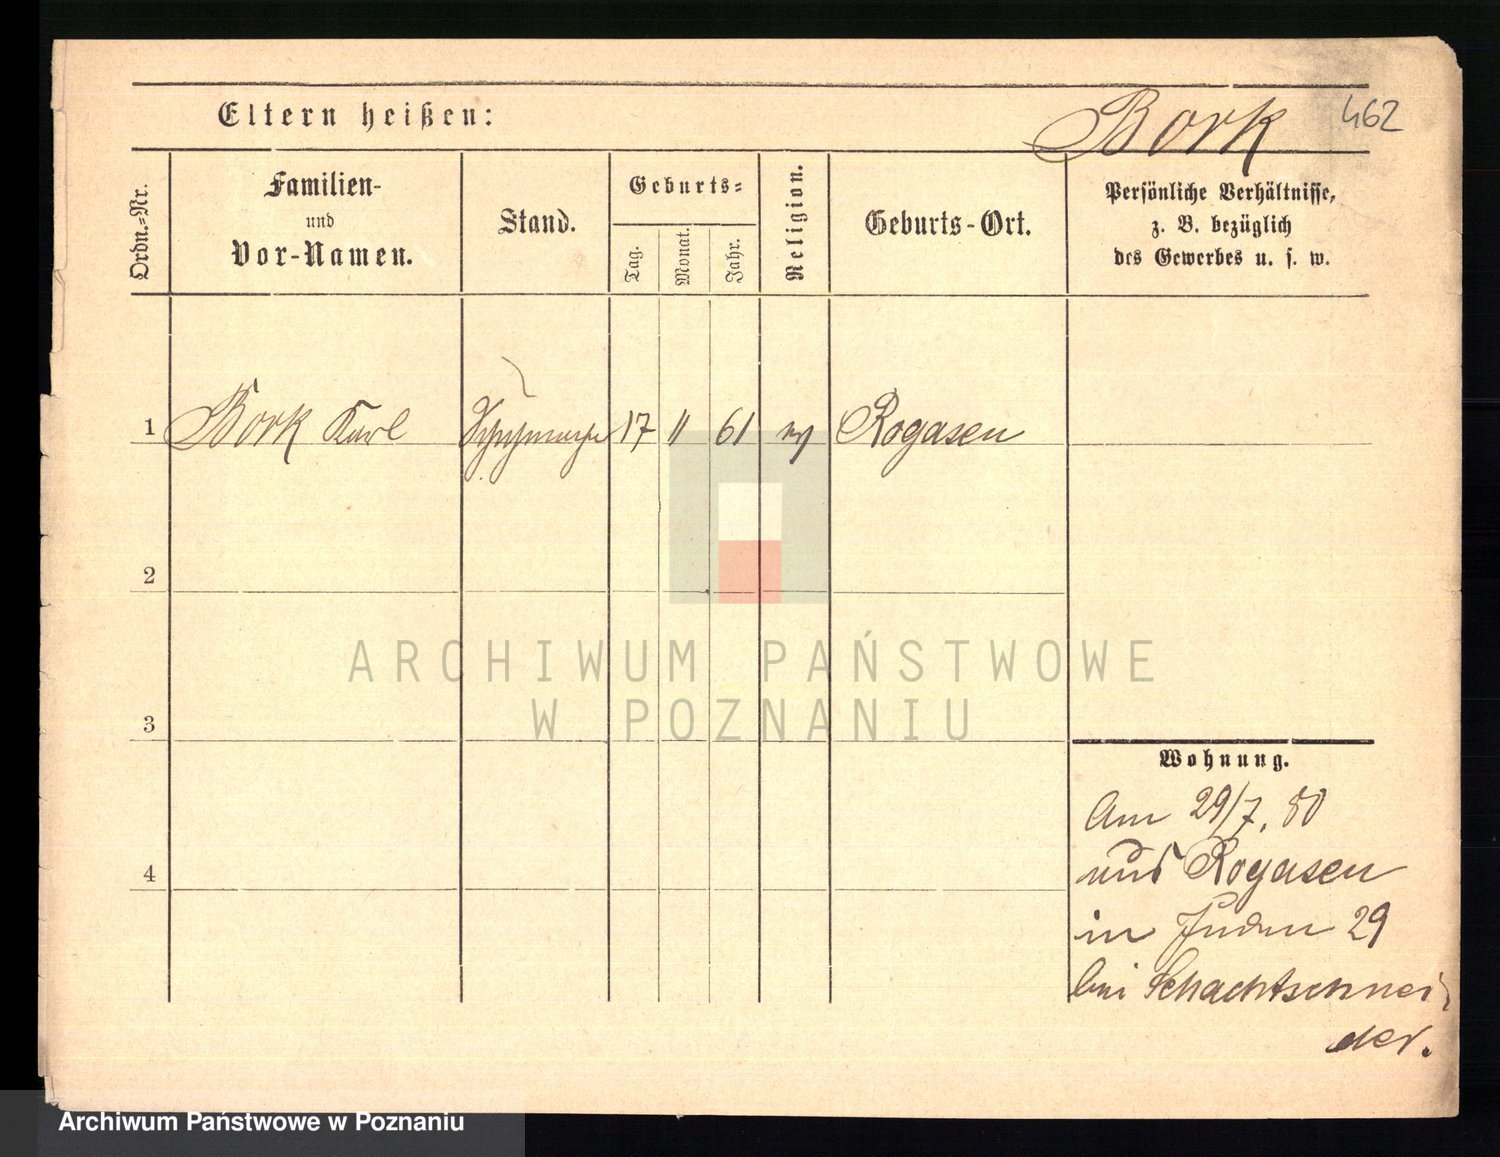 Eltern heißen:
Bork
462
Ordn.=Nr.
Familien-
und
Vor-Namen.
Stand.
Geburts=
Tag.
Monat.
Jahr.
Religion.
Geburts-Ort.
Persönliche Verhältnisse,
z. B. bezüglich
des Gewerbes u. s. w.
1 Bork Karl 17 11 61 Rogasen
2
3
4
Wohnung.
Am 29/7. 80
aus Rogasen
in Juden 29
bei Schachtschnei
der.
ARCHIWUM PAŃSTWOWE
W POZNANIU
Archiwum Państwowe w Poznaniu